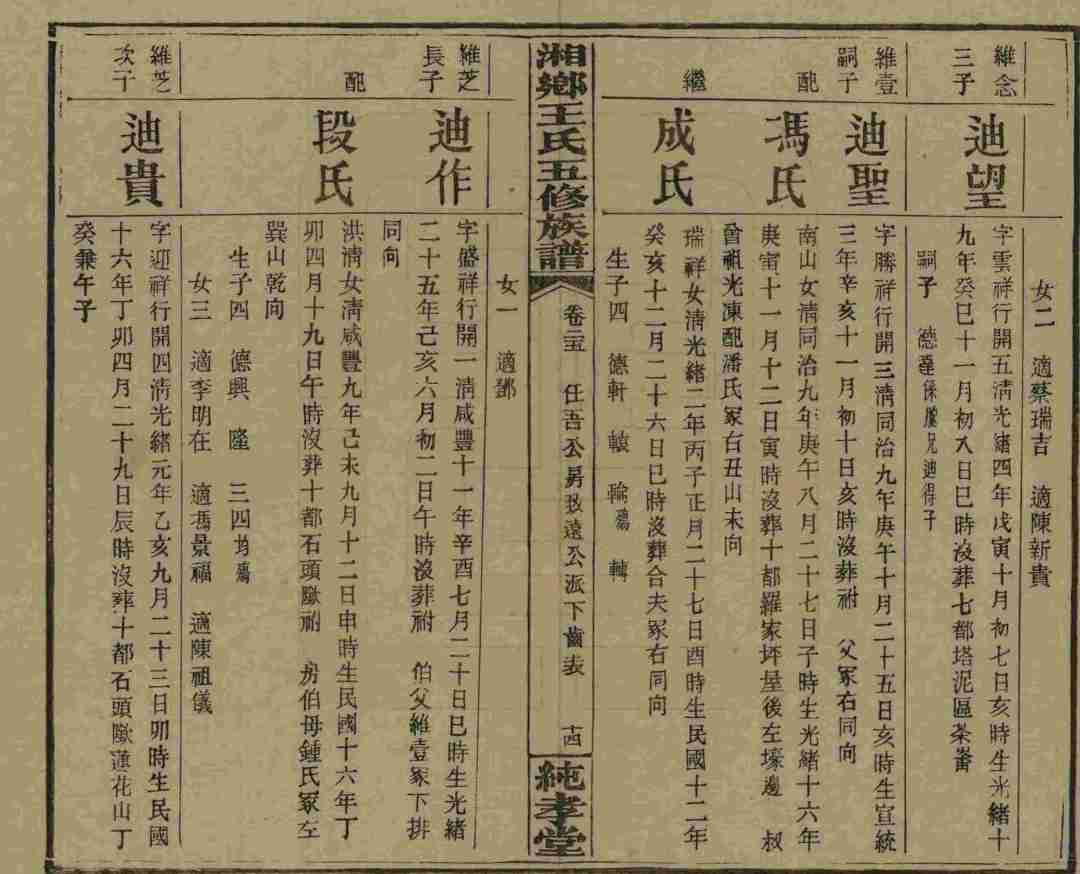 女二　適蔡瑞吉　適陳新貴
維念三子
迪望
字雲祥行開五清光緒四年戊寅十月初七日亥時生光緒十
九年癸巳十一月初八日巳時沒葬七都塔泥區茶崙
嗣子　德　係　兄迪得子
維壹嗣子
迪聖
字勝祥行開三清同治九年庚午十月二十五日亥時生宣統
三年辛亥十一月初十日亥時沒葬祔　父冢右同向
配
馮氏
南山女清同治九年庚午八月二十七日子時生光緒十六年
庚寅十一月十二日寅時沒葬十都羅家坪屋後左壕邊　叔
曾祖光凍配潘氏冢右丑山未向
繼
成氏
瑞祥女清光緒二年丙子正月二十七日酉時生民國十二年
癸亥十二月二十六日巳時沒葬合夫冢右同向
生子四　德軒　轅　輸殤　轉
湘鄉王氏五修族譜
卷二五　任吾公房致遠公派下齒表　十四
純孝堂
女一　適鄧
維芝長子
迪作
字盛祥行開一清咸豐十一年辛酉七月二十日巳時生光緒
二十五年己亥六月初二日午時沒葬祔　伯父維壹冢下排
同向
配
段氏
洪清女清咸豐九年己未九月十二日申時生民國十六年丁
卯四月十九日午時沒葬十都石頭㘭祔　房伯母鍾氏冢左
巽山乾向
生子四　德興　隆　三四均殤
女三　適李明在　適馮景福　適陳祖儀
維芝次子
迪貴
字迎祥行開四清光緒元年乙亥九月二十三日卯時生民國
十六年丁卯四月二十九日辰時沒葬十都石頭㘭蓮花山丁
癸兼午子